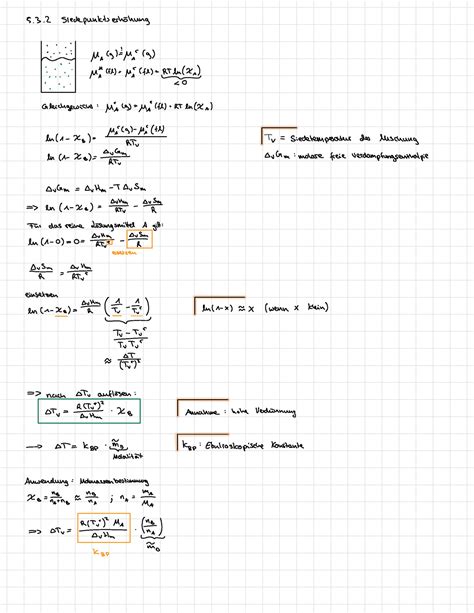 5.3.2 Siedepunktserhöhung
μ_A(g) = μ_A*(g)
μ_A*(fl) = μ_A*(fl) + RT ln(x_A)
< 0
Gleichgewicht: μ_A*(g) = μ_A*(fl) + RT ln(x_A)
ln(1-x_B) = (μ_A*(g) - μ_A*(fl)) / RT_V
T_V = Siedetemperatur der Mischung
ln(1-x_B) = Δ_vG_m / RT_V
Δ_vG_m: molare freie Verdampfungsenthalpie
Δ_vG_m = Δ_vH_m - T Δ_vS_m
=> ln(1-x_B) = Δ_vH_m / RT_V - Δ_vS_m / R
Für das reine Lösungsmittel A gilt:
ln(1-0) = 0 = Δ_vH_m / RT_V* - Δ_vS_m / R
einsetzen
Δ_vS_m / R = Δ_vH_m / RT_V*
einsetzen
ln(1-x_B) = Δ_vH_m / R (1/T_V - 1/T_V*)
ln(1-x) ≈ x (wenn x klein)
(T_V - T_V*) / (T_V T_V*)
≈ ΔT / (T_V*)²
=> nach ΔT_V auflösen:
ΔT_V = R(T_V*)² / Δ_vH_m · x_B
Annahme: hohe Verdünnung
→ ΔT = k_BP · m̃_B
k_BP: Ebullioskopische Konstante
Molalität
Anwendung: Molmassenbestimmung
x_B = n_B / (n_A + n_B) ≈ n_B / n_A ; n_A = m_A / M_A
=> ΔT_V = R(T_V*)² M_A / Δ_vH_m · (n_B / m_A)
k_BP
m̃_B